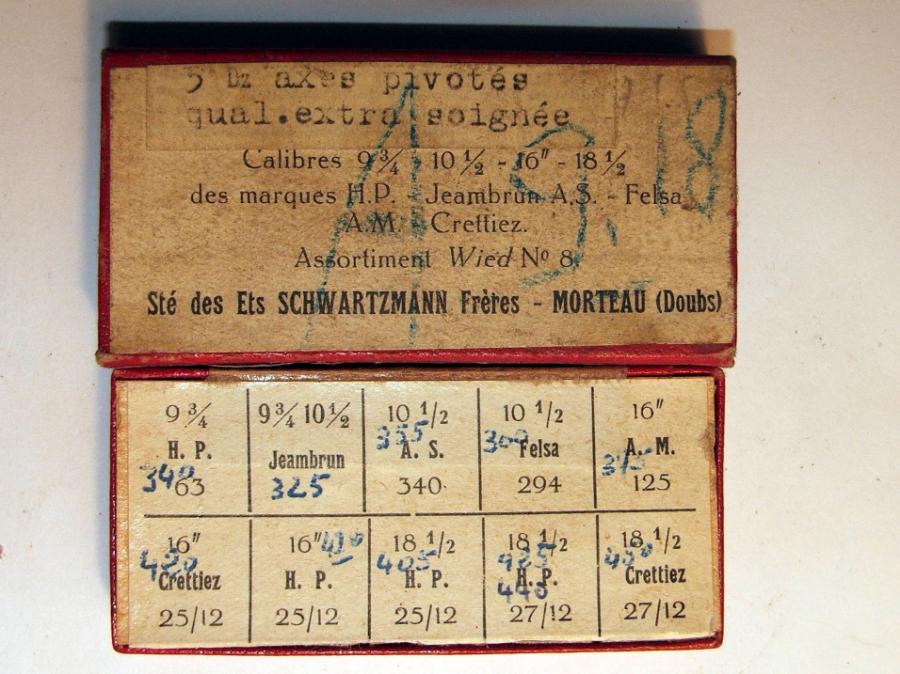 5 Dz axes pivotés
qual.extra soignée
Calibres 9 ¾ - 10 ½ - 16" - 18 ½
des marques H.P. - Jeambrun A.S. - Felsa
A.M. - Crettiez.
Assortiment Wied Nº 8
Sté des Ets SCHWARTZMANN Frères - MORTEAU (Doubs)
9 ¾
H. P.
340
63
9 ¾ 10 ½
Jeambrun
325
10 1/2
355
A. S.
340
10 1/2
300
Felsa
294
16"
A. M.
375
125
16"
Crettiez
25/12
16"
H. P.
25/12
18 1/2
405
H. P.
25/12
18 1/2
425
H. P.
440
27/12
18 1/2
Crettiez
27/12